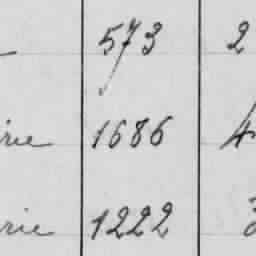 573 2
rie 1686 4
rie 1222 3